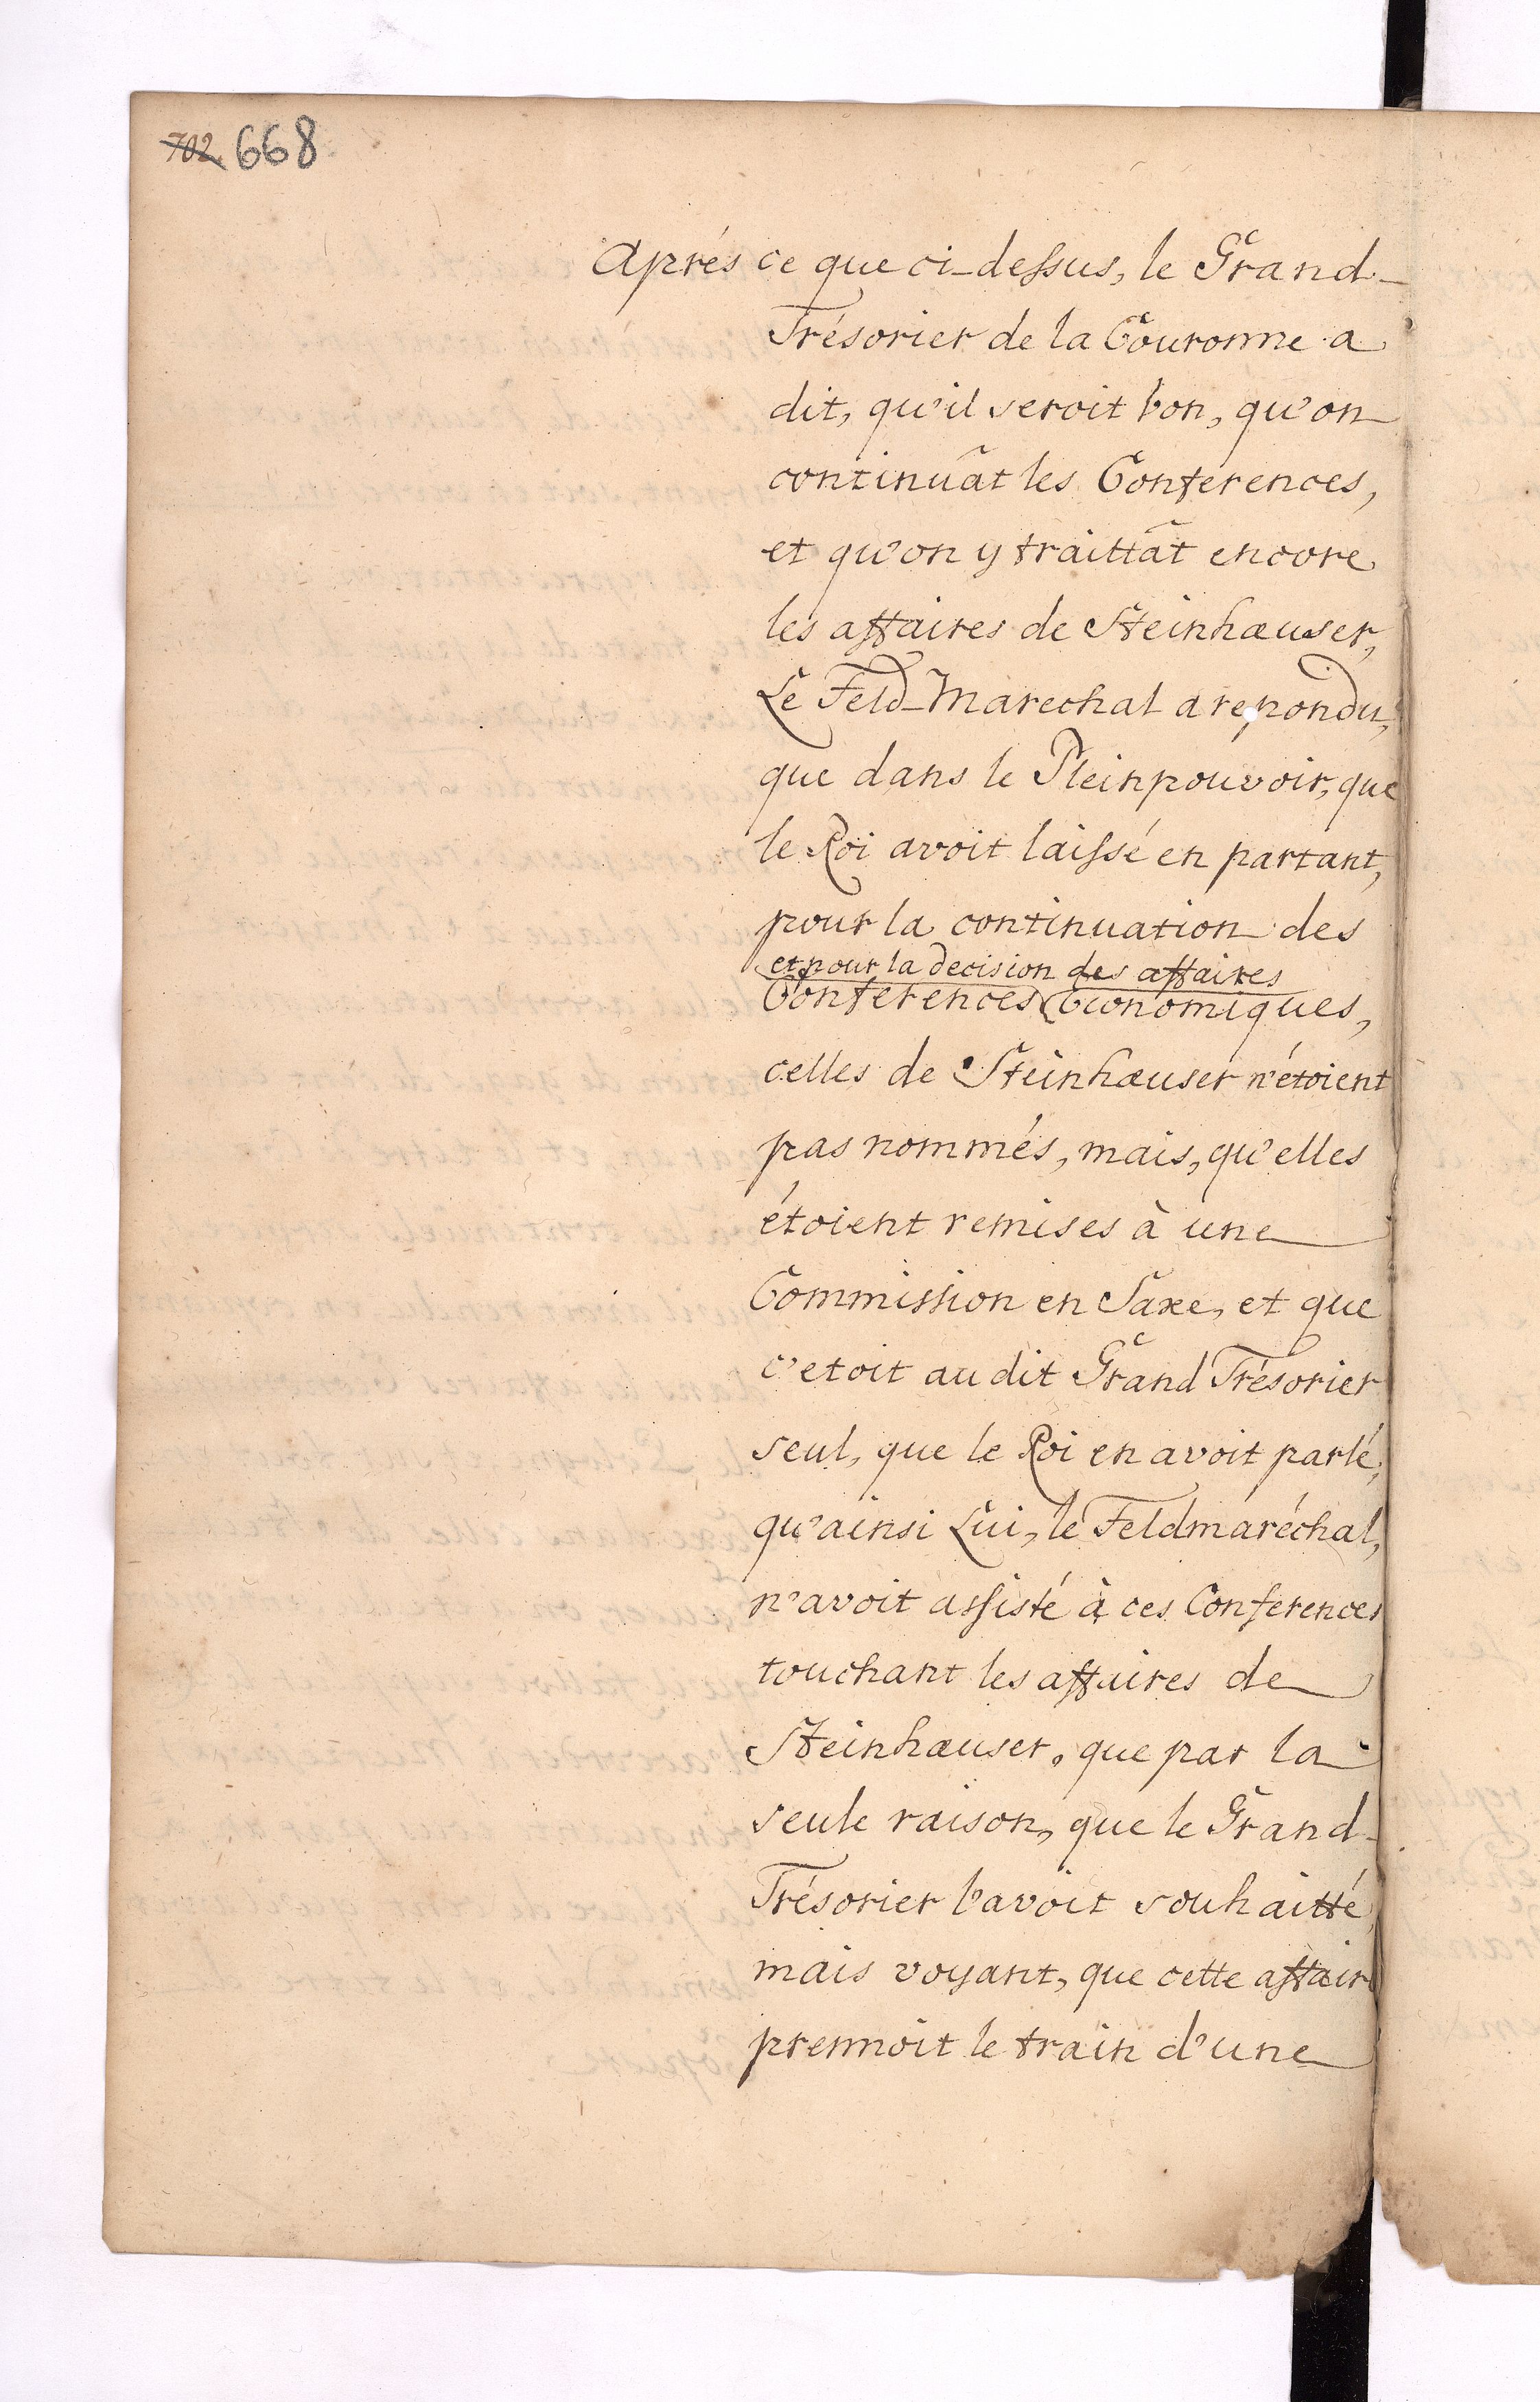 702 668
Aprés ce que ci-dessus, le Grand-
Trésorier de la Couronne a
dit, qu'il seroit bon, qu'on
continuât les Conferences,
et qu'on y traittât encore
les affaires de Steinhæuser,
Le Feld-Marechal a repondu,
que dans le Pleinpouvoir, que
le Roi avoit laissé en partant,
pour la continuation des
et pour la decision des affaires
Conferences Economiques,
celles de Steinhæuser n'étoient
pas nommés, mais, qu'elles
étoient remises à une
Commission en Saxe, et que
c'etoit au dit Grand Trésorier
seul, que le Roi en avoit parlé,
qu'ainsi Lui, le Feldmaréchal,
n'avoit assisté à ces Conferences
touchant les affaires de
Steinhæuser, que par la
seule raison, que le Grand-
Trésorier l'avoit souhaitté,
mais voyant, que cette affair
prennoit le train d'une